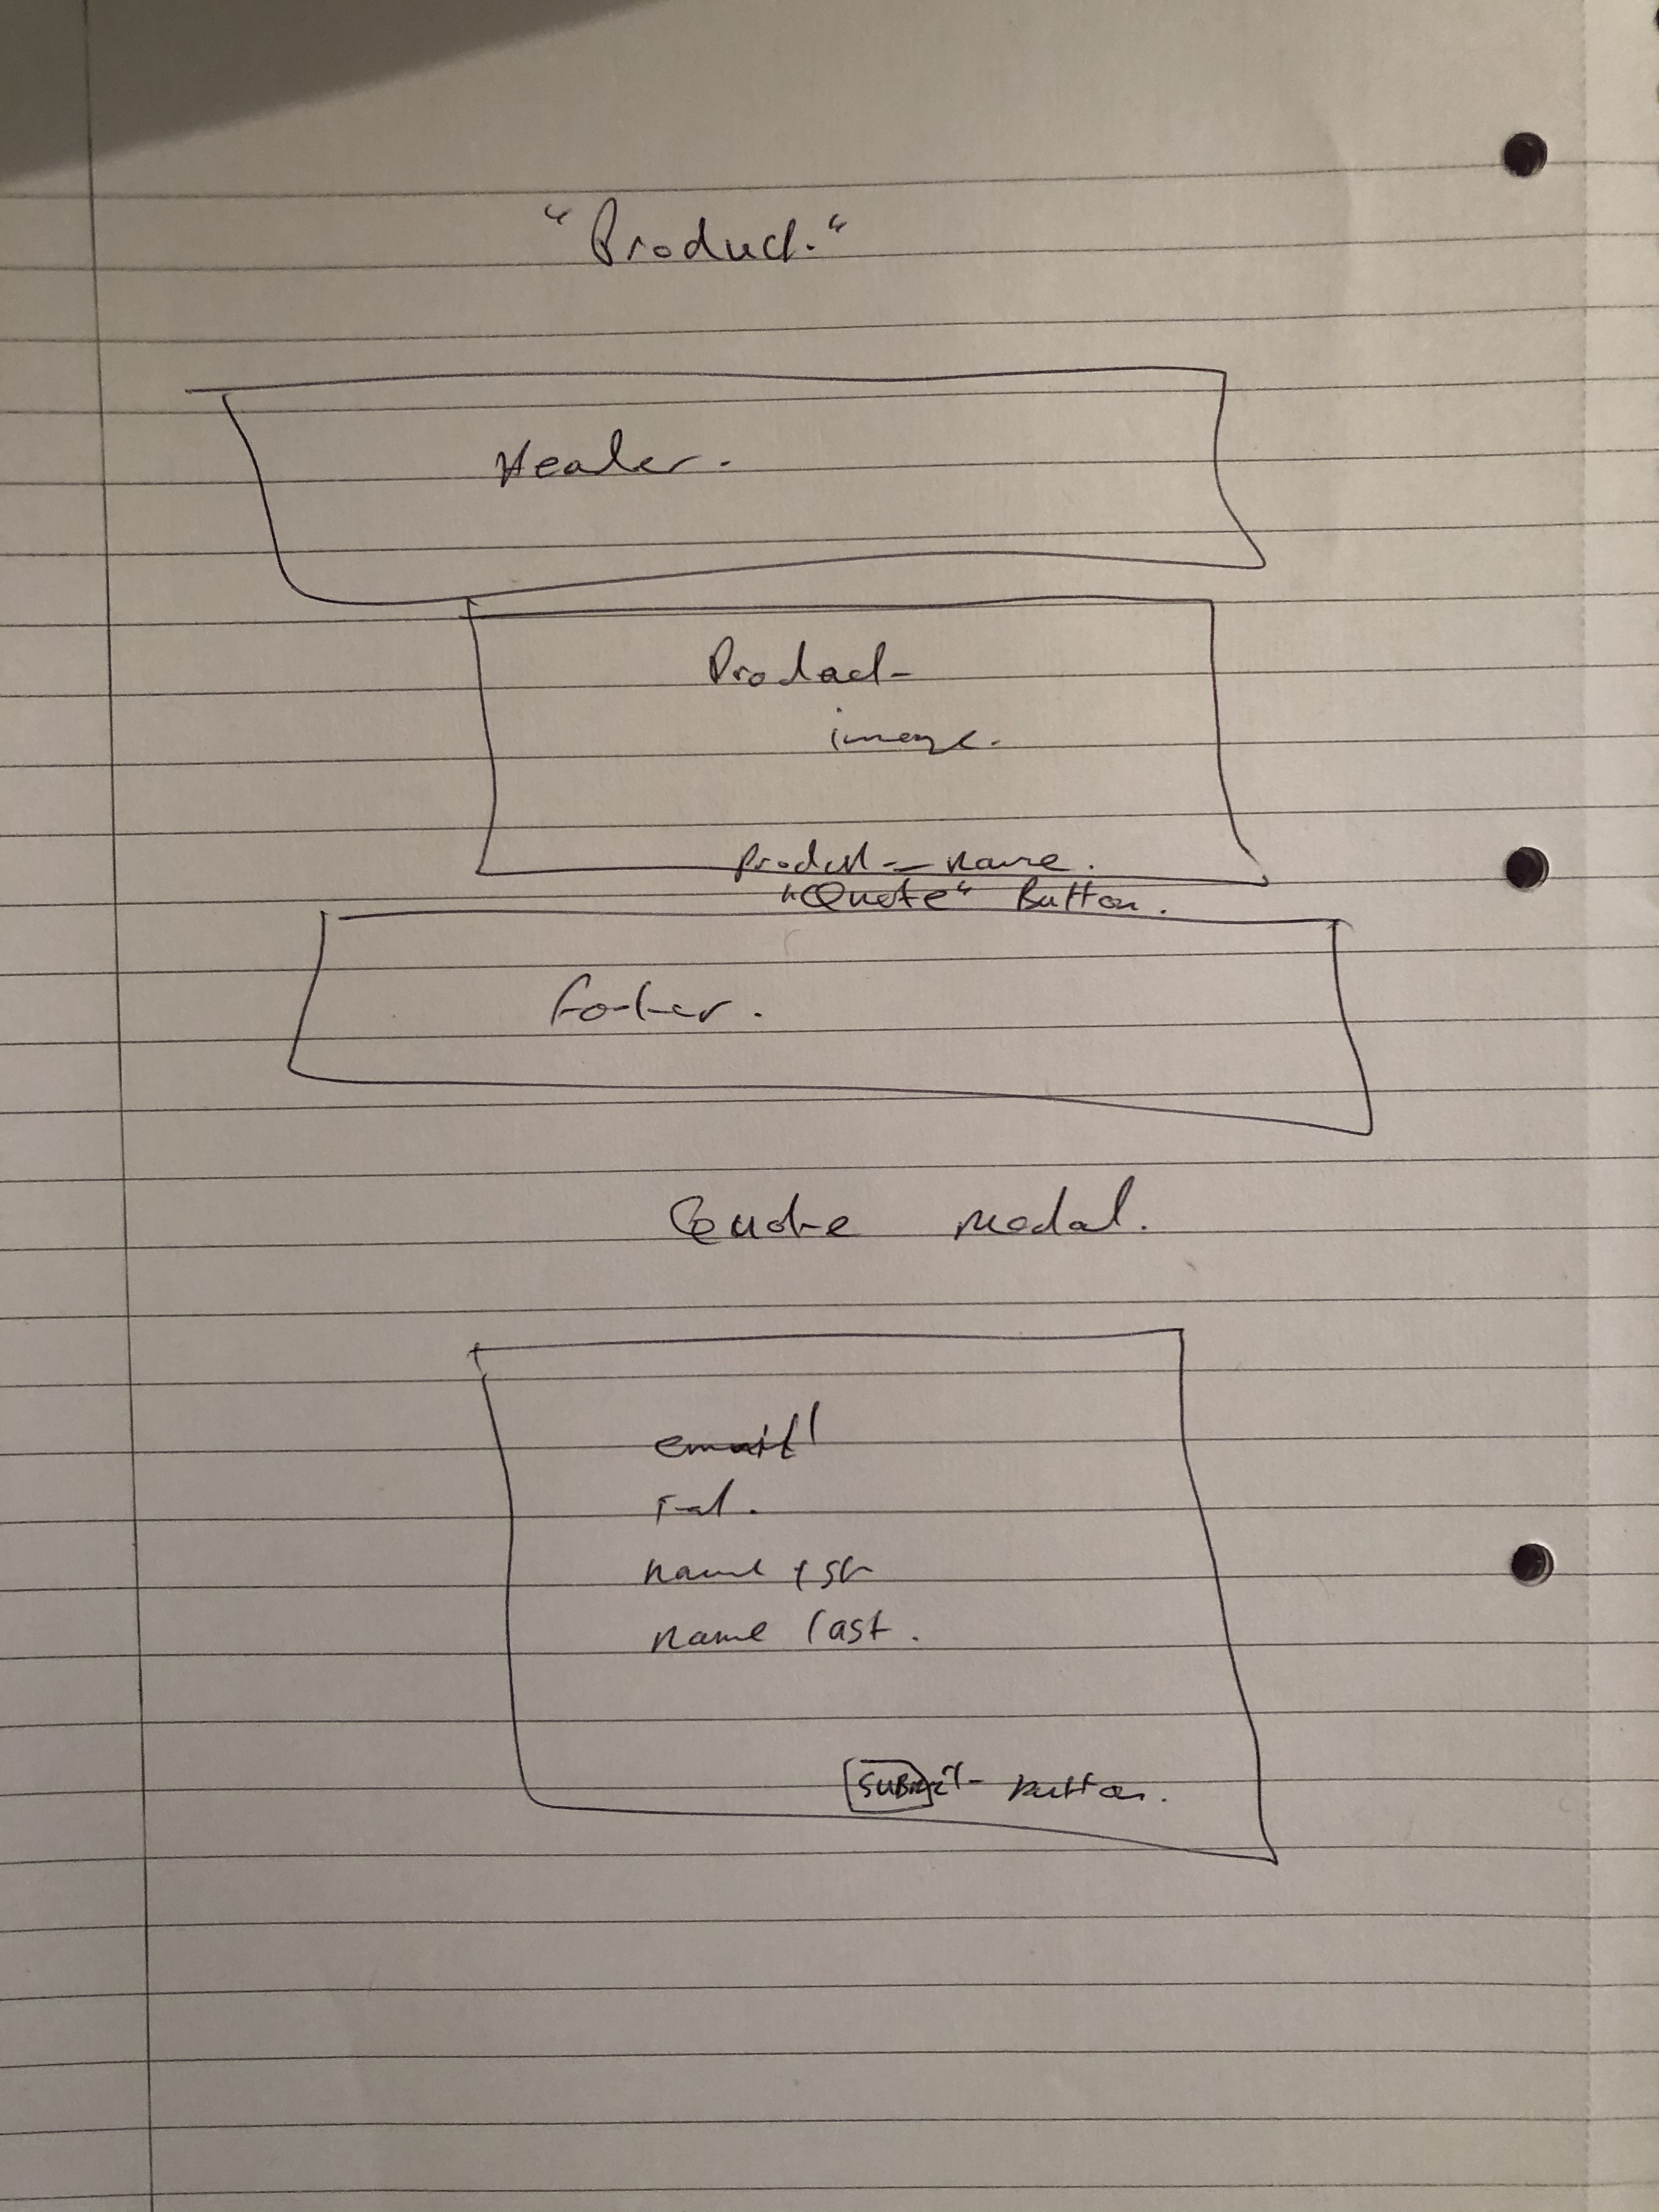 "Product."
Header.
Product
image.
product - name.
"Quote" Button.
footer.
Quote modal.
email
Tel.
name 1st
name last.
Submit button.